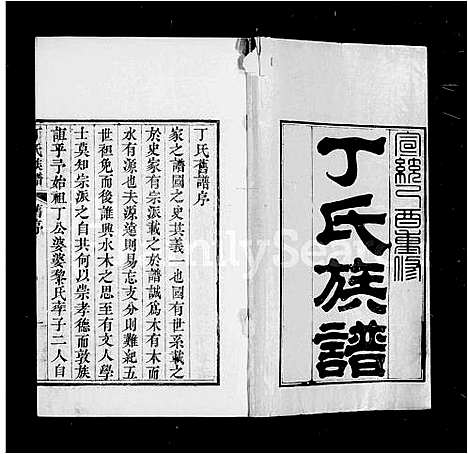 宣統己酉重修
丁氏族譜
丁氏舊譜序
家之譜國之史其義一也國有世系載之
於史家有宗派載之於譜誠爲木有本而
水有源也夫源遠則易忘支分則難紀五
世袒免而後興水木之思至有文人學
士莫知宗派之自其何以崇孝德而敦族
誼乎予始祖丁公婆婆黎氏幸子二人自
丁氏族譜 舊序